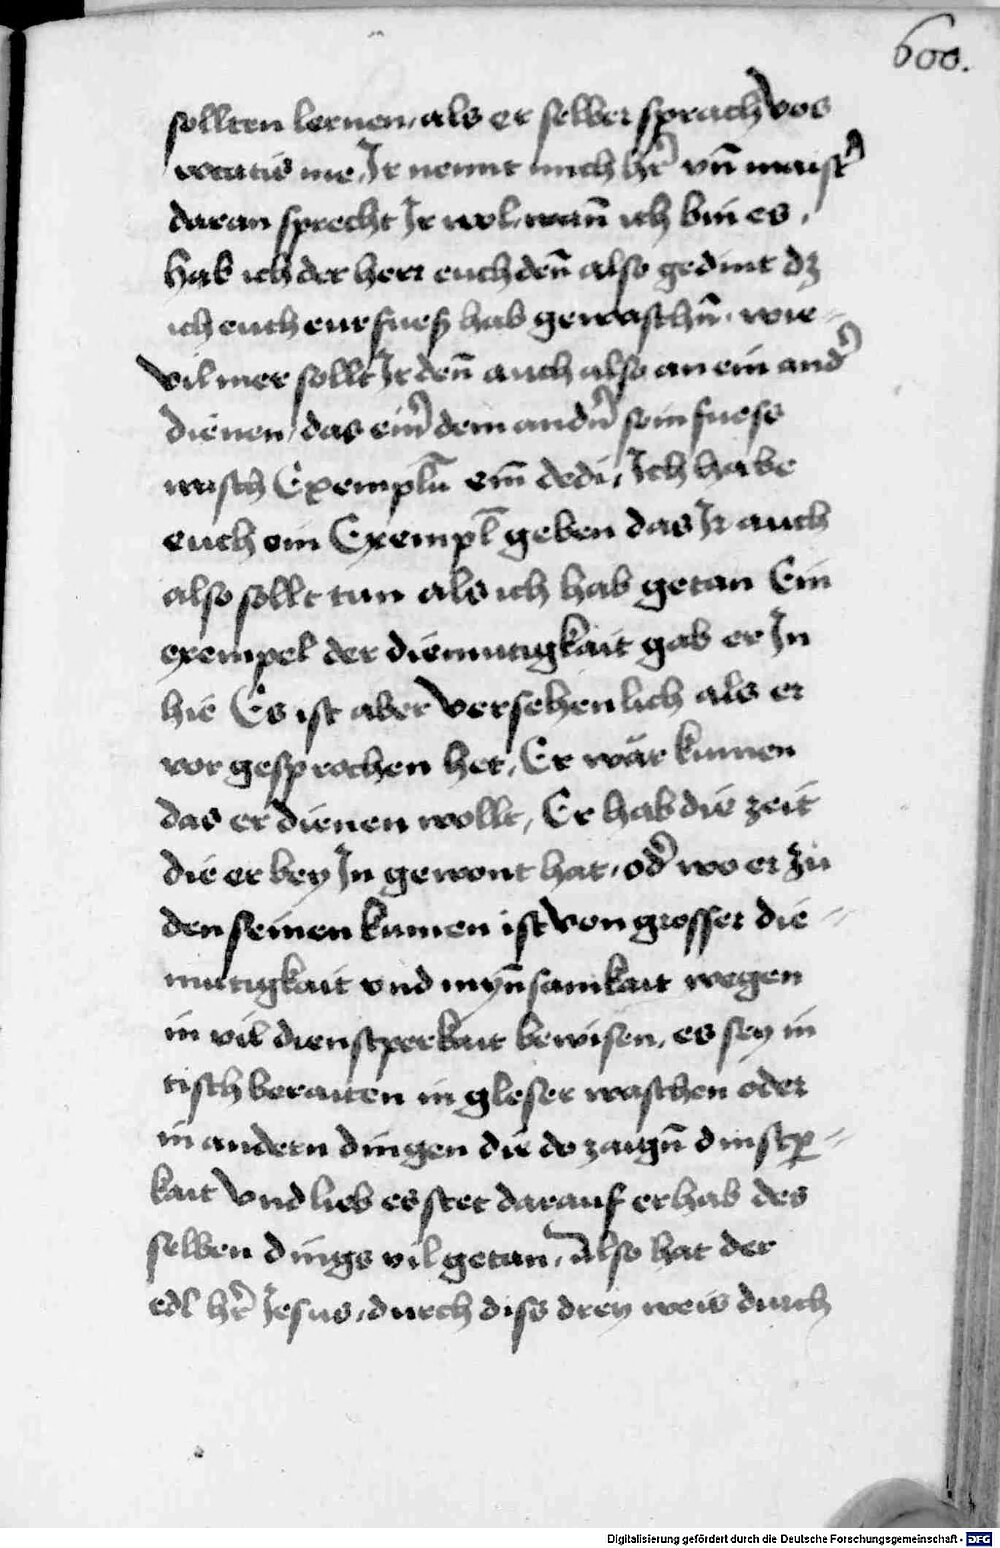 600.
sollten lernen, als er selber sprach Vos
vocatis me, Ir nennt mich hr̄ vn̄ maist̄
daran sprecht Ir wol, wan̄ ich bin es,
Hab ich der herr euch den̄ also gedint dz
ich euch eur fueß hab gewaschn̄, wie-
vil mer sollt Ir den̄ auch also an ein and̄
dienen, das ein̄ dem andn̄ sein fuess
wasch Exemplū em̄ dedi, Ich habe
euch ein Exempl geben das Ir auch
also sollt tun als ich hab getan Ein
exempel der diemutigkait gab er In
hie Es ist aber versehenlich als er
vor gesprochen het, Er wär kumen
das er dienen wollt, Er hab die zeit
die er bey In gewont hat, od̄ wo er zu
den seinen kumen ist von grosser die=
mutigkait vnd myn̄samkait wegen
in vil dienstperkait bewisen, es sey in
tisch beraiten in gleser waschen oder
in andern dingen die do zaign̄ dinstꝑ=
kait Vnd lieb es stet darauf er hab des
selben dings vil getan, Also hat der
edl hr̄ Jesus, durch diss drey weis durch
Digitalisierung gefördert durch die Deutsche Forschungsgemeinschaft - DFG